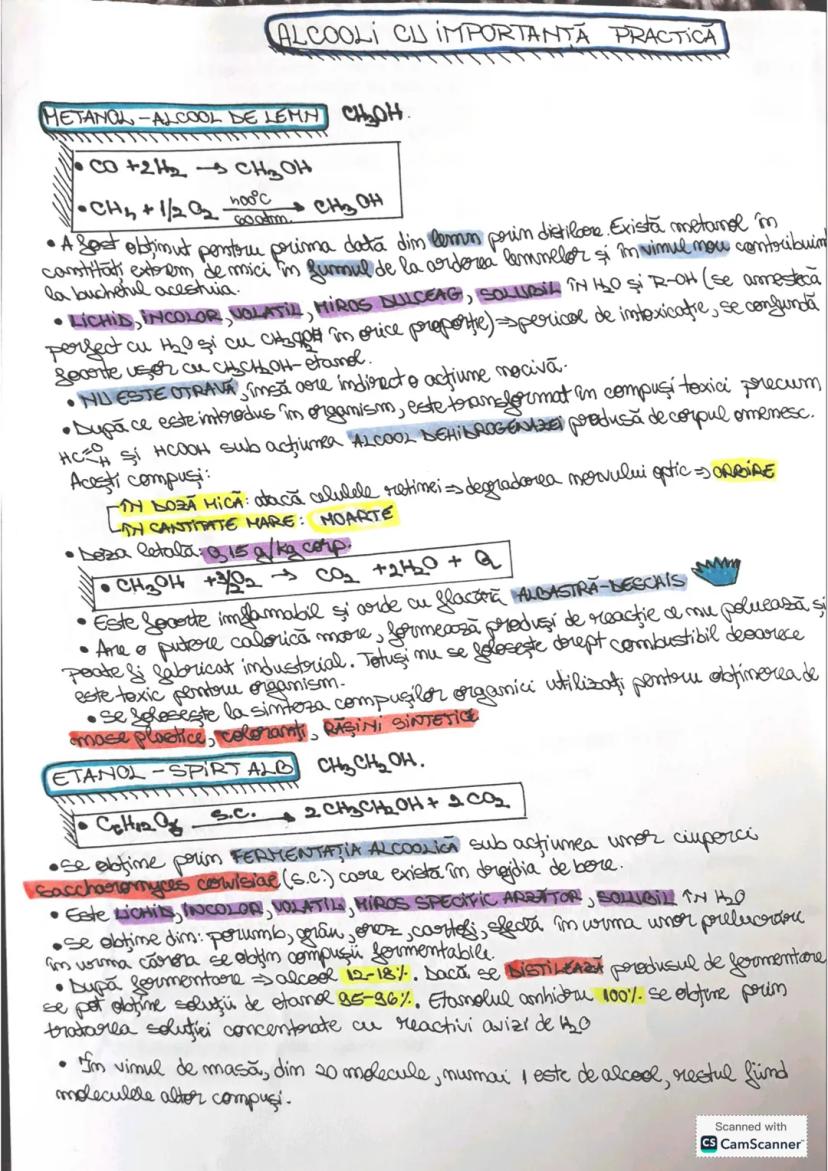 ALCOOLI CU IMPORTANȚĂ PRACTICĂ
METANOL-ALCOOL DE LEMN CH3OH.
• CO + 2H2 → CH3OH
• CH4 + 1/2 O2 400°C 60atm. → CH3OH
• A fost obținut pentru prima dată din lemn prin distilare. Există metanol în
cantități extrem de mici în fumul de la arderea lemnelor și în vinul nou contribuind
la buchetul acestuia.
• LICHID, INCOLOR, VOLATIL, MIROS DULCEAG, SOLUBIL ÎN H2O și R-OH (se amestecă
perfect cu H2O și cu în orice proporție) ⇒ pericol de intoxicație, se confundă
foarte ușor cu CH3CH2OH-etanol.
• NU ESTE OTRAVĂ, însă are indirect o acțiune nocivă.
• După ce este introdus în organism, este transformat în compuși toxici precum
HC=O H și HCOOH sub acțiunea ALCOOL DEHIDROGENAZEI produsă de corpul omenesc.
Acești compuși:
ÎN DOZĂ MICĂ: atacă celulele retinei ⇒ degradarea nervului optic ⇒ ORBIRE
ÎN CANTITATE MARE: MOARTE
• Doza letală: 0,15 g/kg corp.
• CH3OH + 3/2 O2 → CO2 + 2H2O + Q
• Este foarte inflamabil și arde cu flacără ALBASTRĂ-DESCHIS
• Are o putere calorică mare, formează produși de reacție ce nu poluează și
poate fi fabricat industrial. Totuși nu se folosește drept combustibil deoarece
este toxic pentru organism.
• se folosește la sinteza compușilor organici utilizați pentru obținerea de
mase plastice, coloranți, RĂȘINI SINTETICE
ETANOL-SPIRT ALB CH3CH2OH.
• C6H12O6 s.c. → 2CH3CH2OH + 2CO2
• se obține prin FERMENTAȚIA ALCOOLICĂ sub acțiunea unor ciuperci
saccharomyces cervisiae (s.c.) care există în drojdia de bere.
• Este LICHID, INCOLOR, VOLATIL, MIROS SPECIFIC ARZĂTOR, SOLUBIL ÎN H2O
• se obține din: porumb, grâu, orez, cartofi, sfeclă în urma unor prelucrări
în urma cărora se obțin compuși fermentabile.
• După fermentare ⇒ alcool 12-18%. Dacă se DISTILEAZĂ produsul de fermentare
se pot obține soluții de etanol 95-96%. Etanolul anhidru 100% se obține prin
tratarea soluției concentrate cu reactivi avizi de H2O
• În vinul de masă, din 20 molecule, numai 1 este de alcool, restul fiind
moleculele altor compuși.
Scanned with
CS CamScanner